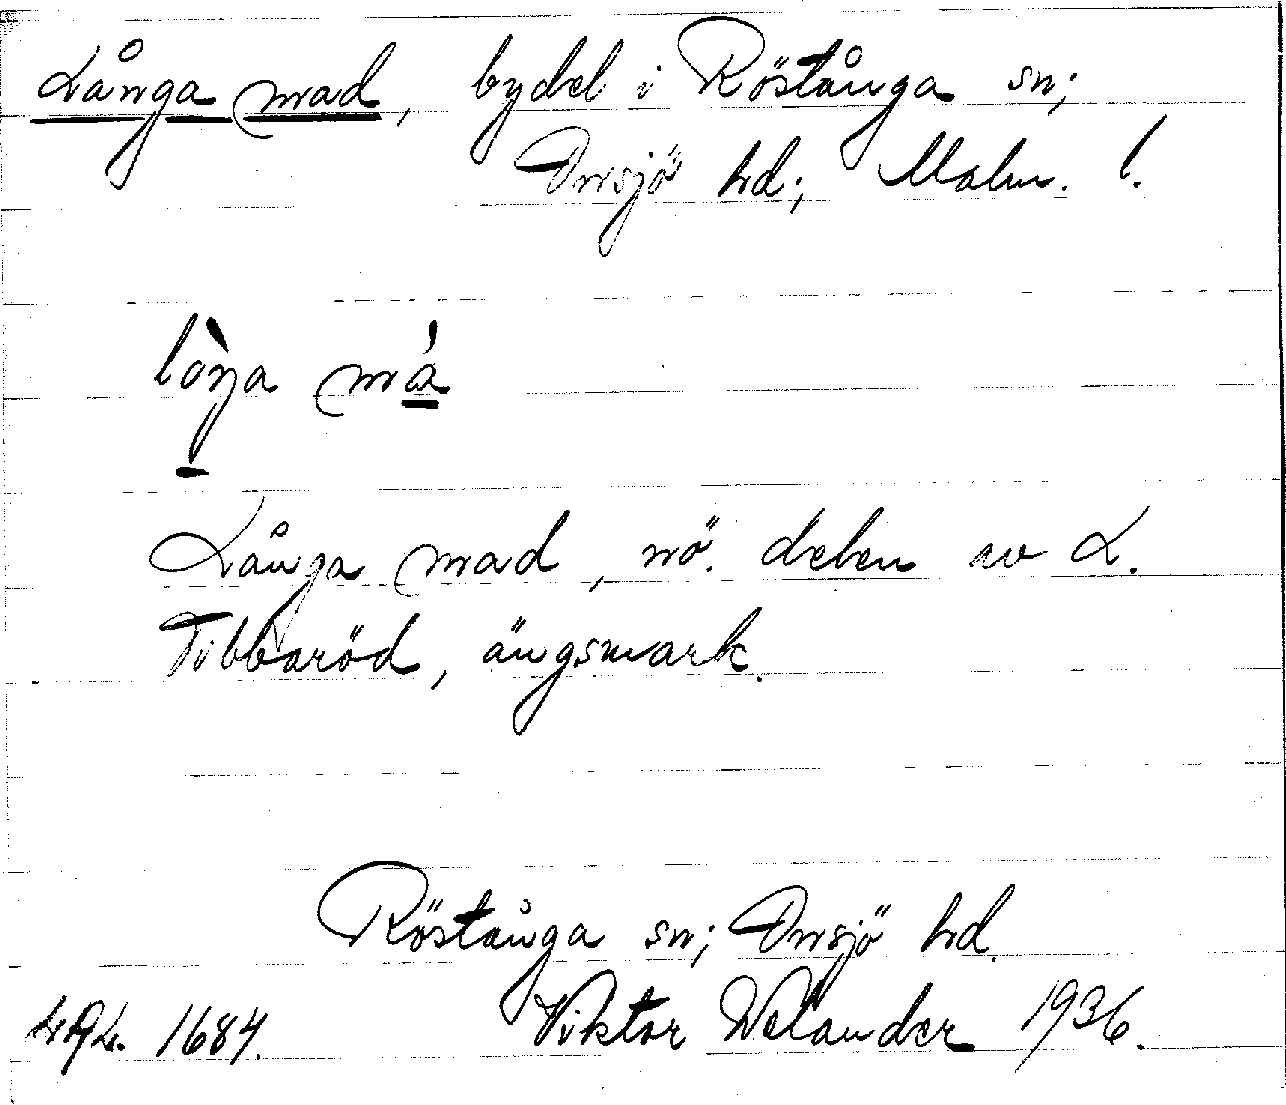 Långa mad, bydel i Röstånga sn;
Onsjö hd; Malm. l.
lòŋa má
Långa mad, nö. delen av L.
Tibbaröd, ängsmark.
Röstånga sn; Onsjö hd.
1684. Viktor Welander 1936.